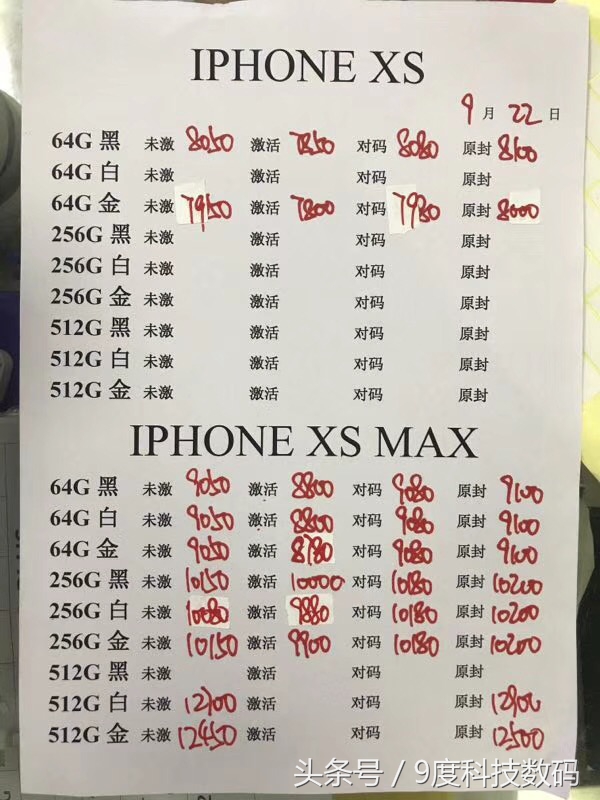 IPHONE XS
9月22日
64G 黑 未激 8050 激活 7850 对码 8080 原封 8100
64G 白 未激 激活 对码 原封
64G 金 未激 7950 激活 7800 对码 7980 原封 8000
256G 黑 未激 激活 对码 原封
256G 白 未激 激活 对码 原封
256G 金 未激 激活 对码 原封
512G 黑 未激 激活 对码 原封
512G 白 未激 激活 对码 原封
512G 金 未激 激活 对码 原封
IPHONE XS MAX
64G 黑 未激 9050 激活 8800 对码 9080 原封 9100
64G 白 未激 9050 激活 8800 对码 9080 原封 9100
64G 金 未激 9050 激活 8780 对码 9080 原封 9100
256G 黑 未激 10150 激活 10000 对码 10180 原封 10200
256G 白 未激 10080 激活 9880 对码 10180 原封 10200
256G 金 未激 10150 激活 9900 对码 10180 原封 10200
512G 黑 未激 激活 对码 原封
512G 白 未激 激活 对码 原封
512G 金 未激 12450 激活 对码 原封 12500
头条号 / 9度科技数码